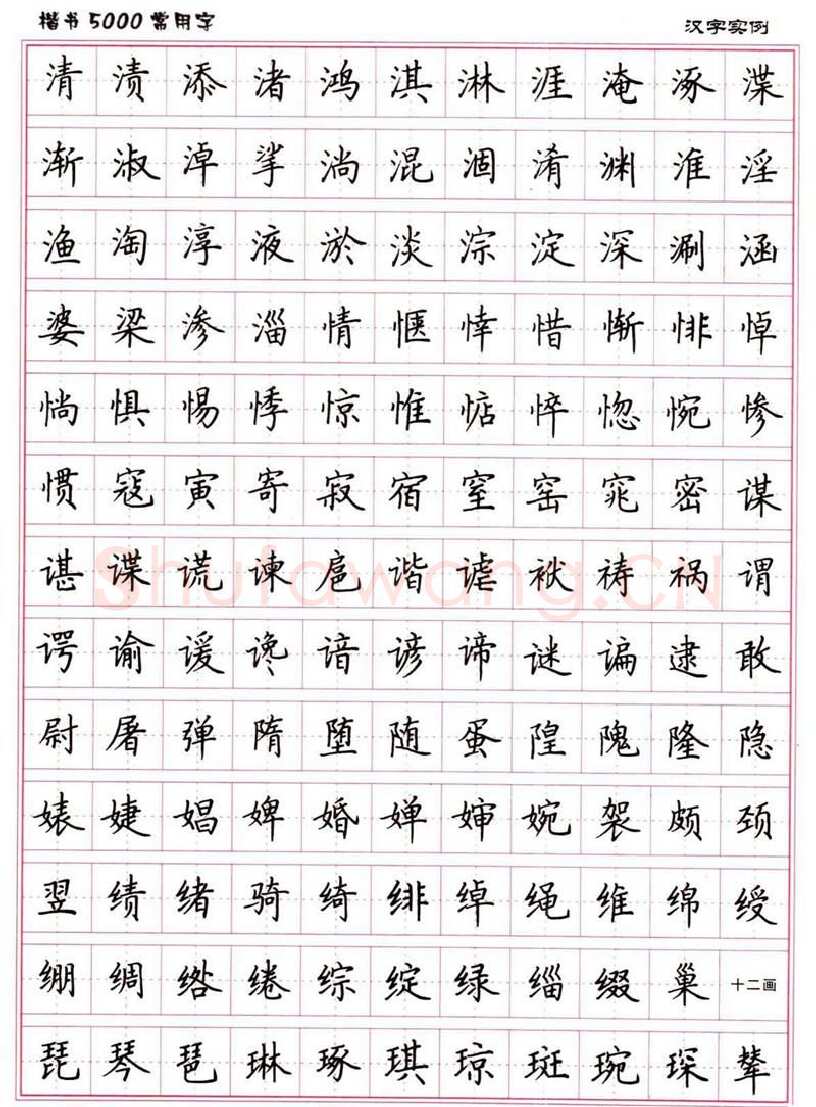 楷书5000常用字 汉字实例
清 渍 添 渚 鸿 淇 淋 涯 淹 涿 渫
渐 淑 淖 挲 淌 混 涸 淆 渊 淮 淫
渔 淘 淳 液 淤 淡 淙 淀 深 涮 涵
婆 梁 渗 淄 情 惬 悻 惜 惭 悱 悼
惝 惧 惕 悸 惊 惟 惦 悴 惚 惋 惨
惯 寇 寅 寄 寂 宿 窒 窑 窕 密 谋
谌 谍 谎 谏 扈 谐 谑 袱 祷 祸 谓
谔 谕 谖 谗 谙 谚 谛 谜 谝 逮 敢
尉 屠 弹 隋 堕 随 蛋 隍 隗 隆 隐
婊 婕 娼 婢 婚 婵 婶 婉 袈 颇 颈
翌 绩 绪 骑 绮 绯 绰 绳 维 绵 绶
绷 绸 绺 绻 综 绽 绿 缁 缀 巢 十二画
琵 琴 琶 琳 琢 琪 琼 斑 琬 琛 辇
Shufawang.CN